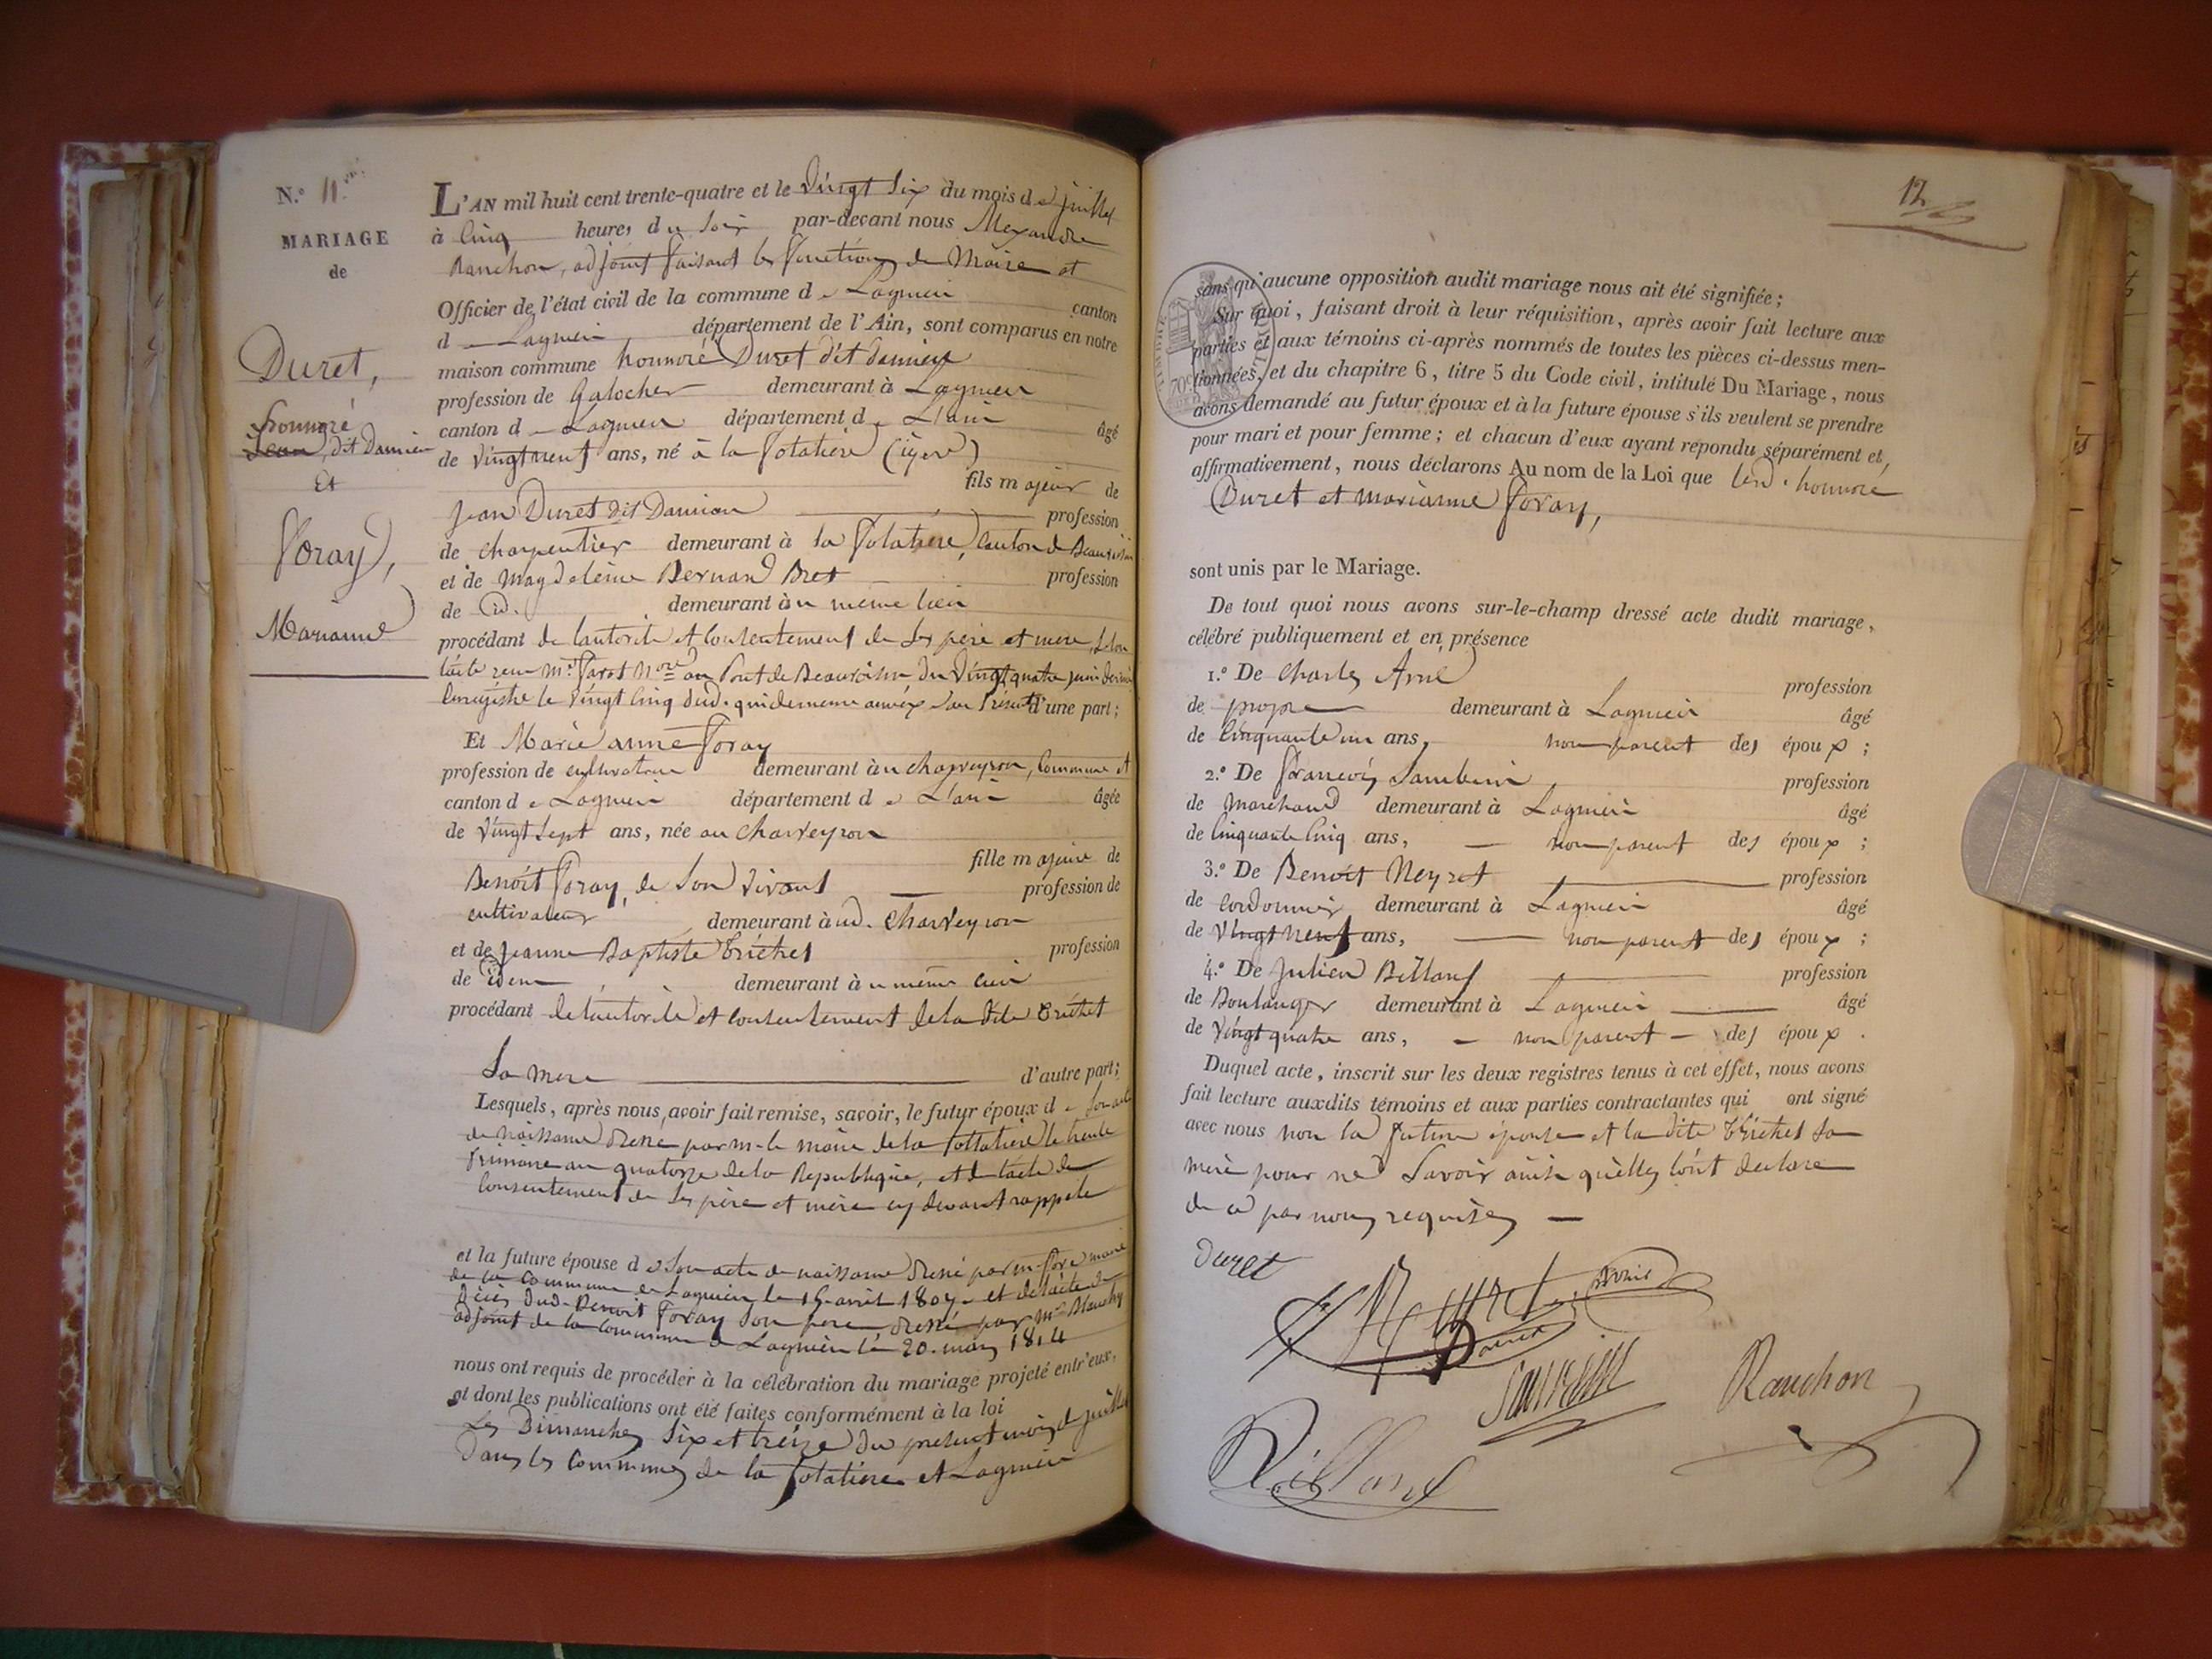 N.° 11.
MARIAGE
de
Duret,
honnoré
Jean, dit Damien
Et
Foray,
Marianne
L'AN mil huit cent trente-quatre et le vingt six du mois de juillet
à cinq heures du soir par-devant nous Alexandre
Ranchon, adjoint faisant les fonctions de Maire et
Officier de l'état civil de la commune de Lagnieu canton
de Lagnieu département de l'Ain, sont comparus en notre
maison commune honnoré Duret dit Damien
profession de Galocher demeurant à Lagnieu
canton de Lagnieu département de L'ain âgé
de vingt neuf ans, né à la folatiere (isere)
fils majeur de
Jean Duret dit Damian profession
de charpentier demeurant à la folatiere, Canton de Beauvoisin
et de Magdeleine Bernard Bret profession
de id. demeurant au meme lieu
procédant de lautorité et consentement de ses pere et mere, selon
lacte reçu Mr. not.re au Pont de Beauvoisin du vingt quatre juin dernier
enregistré le vingt cinq dud. qui demeure annéxé au présent d'une part;
Et Marie anne foray
profession de cultivatrice demeurant au charveyron, Commune et
canton de Lagnieu département de L'ain âgée
de vingt sept ans, née au charveyron
fille majeure de
Benoit foray, de son vivant profession de
cultivateur demeurant aud. Charveyron
et de Jeanne Baptiste Trichet profession
de idem demeurant au même lieu
procédant de lautorité et consentement de la dite Trichet
Sa mere d'autre part;
Lesquels, après nous avoir fait remise, savoir, le futur époux de son acte
de naissance dressé par m. le maire de la follatiere le trente
frimaire an quatorze de la Republique, et de lacte de
consentement de ses père et mère cy devant rappelé
et la future épouse de son acte de naissance dressé par m. maire
de la Commune de Lagnieu le 15 avril 1807. et de lacte de
décès dud. Benoit Foray son pere dressé par Mr
adjoint de la Commune de Lagnieu le 20. mars 1814
nous ont requis de procéder à la célébration du mariage projeté entr'eux,
et dont les publications ont été faites conformément à la loi
Les Dimanches six et treize du présent mois de juillet
Dans les Communes de la folatiere et Lagnieu
12
sans qu'aucune opposition audit mariage nous ait été signifiée;
Sur quoi, faisant droit à leur réquisition, après avoir fait lecture aux
parties et aux témoins ci-après nommés de toutes les pièces ci-dessus men-
tionnées, et du chapitre 6, titre 5 du Code civil, intitulé Du Mariage, nous
avons demandé au futur époux et à la future épouse s'ils veulent se prendre
pour mari et pour femme; et chacun d'eux ayant repondu séparément et
affirmativement, nous déclarons Au nom de la Loi que lesd. honnoré
Duret et marianne foray,
sont unis par le Mariage.
De tout quoi nous avons sur-le-champ dressé acte dudit mariage,
célébré publiquement et en présence
1.° De Charles profession
de propre demeurant à Lagnieu âgé
de cinquante un ans, non parent des époux;
2.° De françois profession
de marchand demeurant à Lagnieu âgé
de cinquante cinq ans, non parent des époux;
3.° De Benoit Neyret profession
de cordonnier demeurant à Lagnieu âgé
de vingt neuf ans, non parent des époux;
4.° De Julien Billard profession
de Boulanger demeurant à Lagnieu âgé
de vingt quatre ans, non parent des époux.
Duquel acte, inscrit sur les deux registres tenus à cet effet, nous avons
fait lecture auxdits témoins et aux parties contractantes qui ont signé
avec nous non la future épouse et la dite Trichet sa
mere pour ne savoir ainsi qu'elles l'ont declaré
de ce par nous requises
Duret
Neyret
Ranchon
Billard